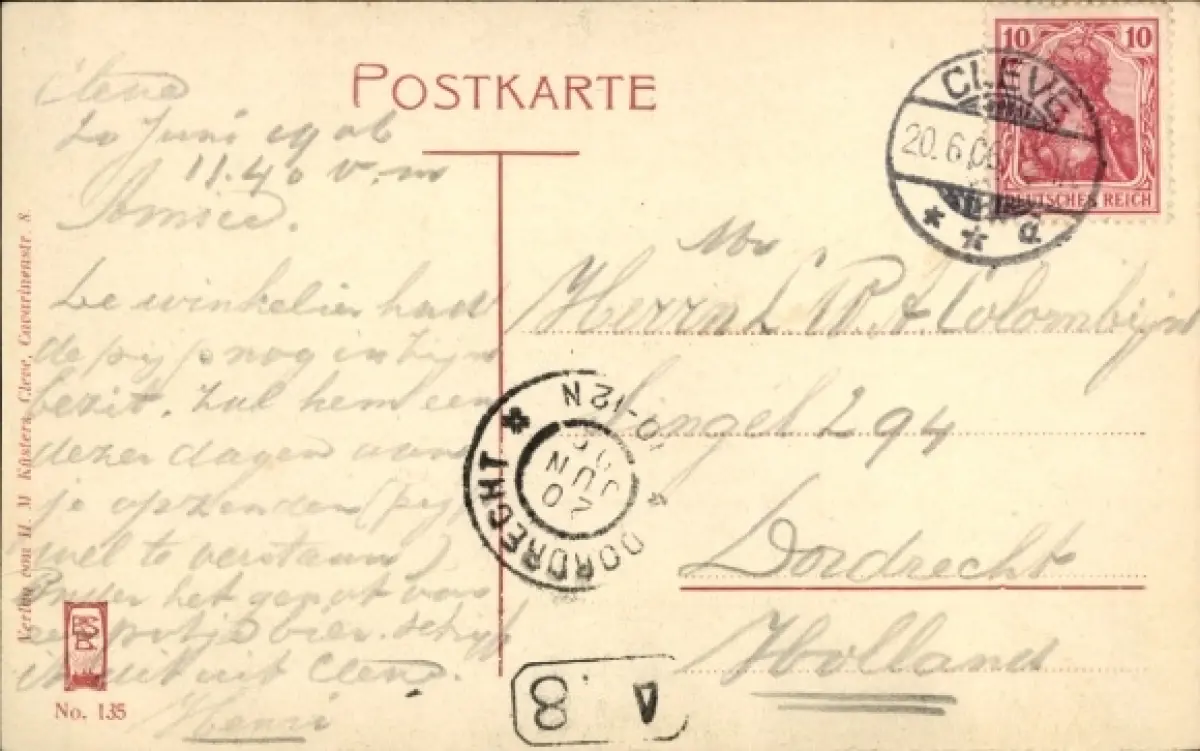 POSTKARTE
Cleve
20 Juni 1906
11.40 v.m
Amice.
De winkelier had
de pijp nog in zijn
bezit. Zal hem een
dezer dagen aan
je opzenden (pijp
wel te verstaan)
Onder het genot van
een potje bier schrijf
ik dit uit Cleve.
Henri
Herrn L. R. A. Colombijn
Singel 294
Dordrecht
Holland
10 10
DEUTSCHES REICH
CLEVE
20.6.06
* * d.
DORDRECHT
10-12N
20
JUN
06
A 8
Verlag von H. M Küsters, Cleve, Cavarinerstr. 8.
No. 135